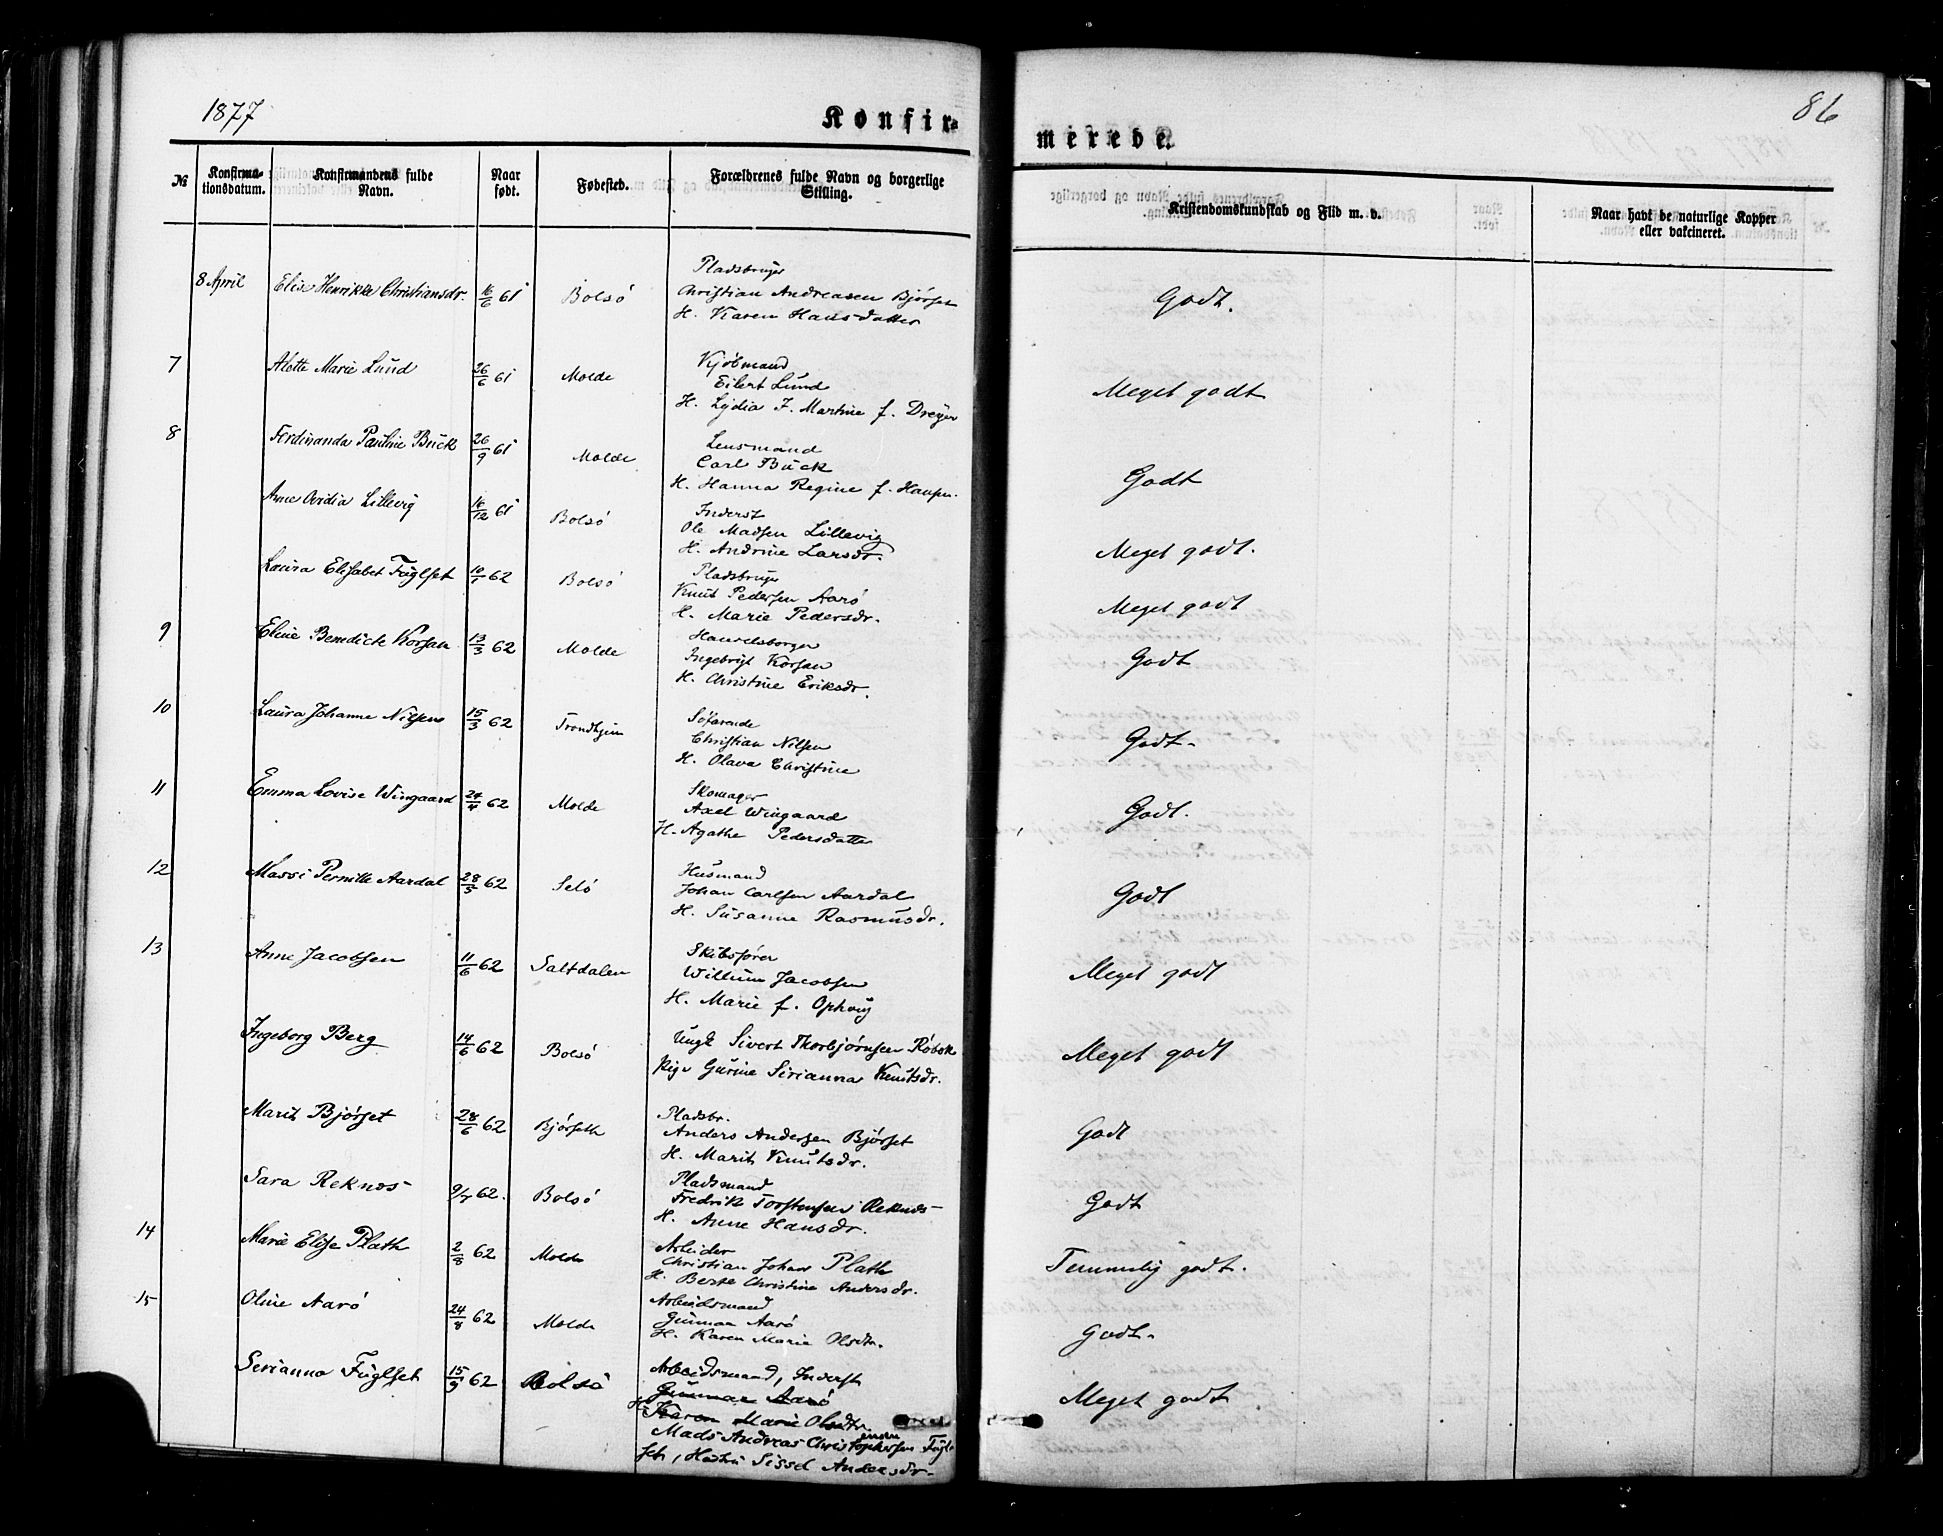 1877
Konfir-
merede.
86
№
Konfirma-
tionsdatum.
Konfirmandens fulde
Navn.
Naar
født.
Fødested.
Forældrenes fulde Navn og borgerlige
Stilling.
Kristendomskundskab og Flid m. v.
Naar havt de naturlige Kopper
eller vakcineret.
8 April Elise Henrikke Christiansdr. 16/6 61 Bolsö
Pladsbruger
Christian Andreasen Björset
H. Karen Hansdatter
Godt.
7 Alette Marie Lund 26/6 61 Molde
Kjöbmand
Eilert Lund
H. Lydia J. Martine f. Dreyer
Meget godt
8 Ferdinanda Pauline Buck 26/9 61 Molde
Lensmand
Carl Buck
H. Hanna Regine f. Hansen.
Godt
Anne Ovidia Lillevig 16/12 61 Bolsö
Inderst
Ole Madsen Lillevig
H. Andrine Larsdr.
Meget godt.
Laura Elisabet Fuglset 10/1 62 Bolsö
Pladsbruger
Knut Pedersen Aarö
H. Marie Pedersdr.
Meget godt
9 Eline Benedicte Korsan 13/3 62 Molde
Handelsborger
Ingebrigt Korsan
H. Christine Eriksdr.
Godt
10 Laura Johanne Nilsen 15/3 62 Trondhjem
Söfarende
Christian Nilsen
H. Olava Christine
Godt.
11 Emma Lovise Wingaard 24/4 62 Molde
Skomager
Axel Wingaard
H. Agathe Pedersdatter
Godt.
12 Massi Pernille Aardal 28/5 62 Selö
Husmand
Johan Carlsen Aardal
H. Susanne Rasmusdr.
Godt
13 Anne Jacobsen 11/6 62 Saltdalen
Skibsförer
Willum Jacobsen
H. Marie f. Ophaug
Meget godt
Ingeborg Berg 14/6 62 Bolsö
Ungk. Sivert Thorbjörnsen Röbek
Pige Gurine Sirianna Knutsdr.
Meget godt
Marit Björset 28/6 62 Björseth
Pladsbr.
Anders Andersen Björset
H. Marit Knutsdr.
Godt
Sara Reknes 9/7 62. Bolsö
Pladsmand
Fredrik Torstensen Reknes
H. Anne Hansdr.
Godt
14 Marie Elise Plath 2/8 62 Molde
Arbeider
Christian Johan Plath
H. Berte Christine Andersdr.
Temmelig godt.
15 Oline Aarö 24/8 62 Molde
Arbeidsmand
Gunnar Aarö
H. Karen Marie Olsdtr.
Godt.
Serianna Fuglset 15/9 62 Bolsö
Arbeidsmand, Inderst
Gunnar Aarö
H. Karen Marie Olsdtr.
Mads Andreas Christophersen Fugl-
set, Hustru Sissel Andersdr.
Meget godt